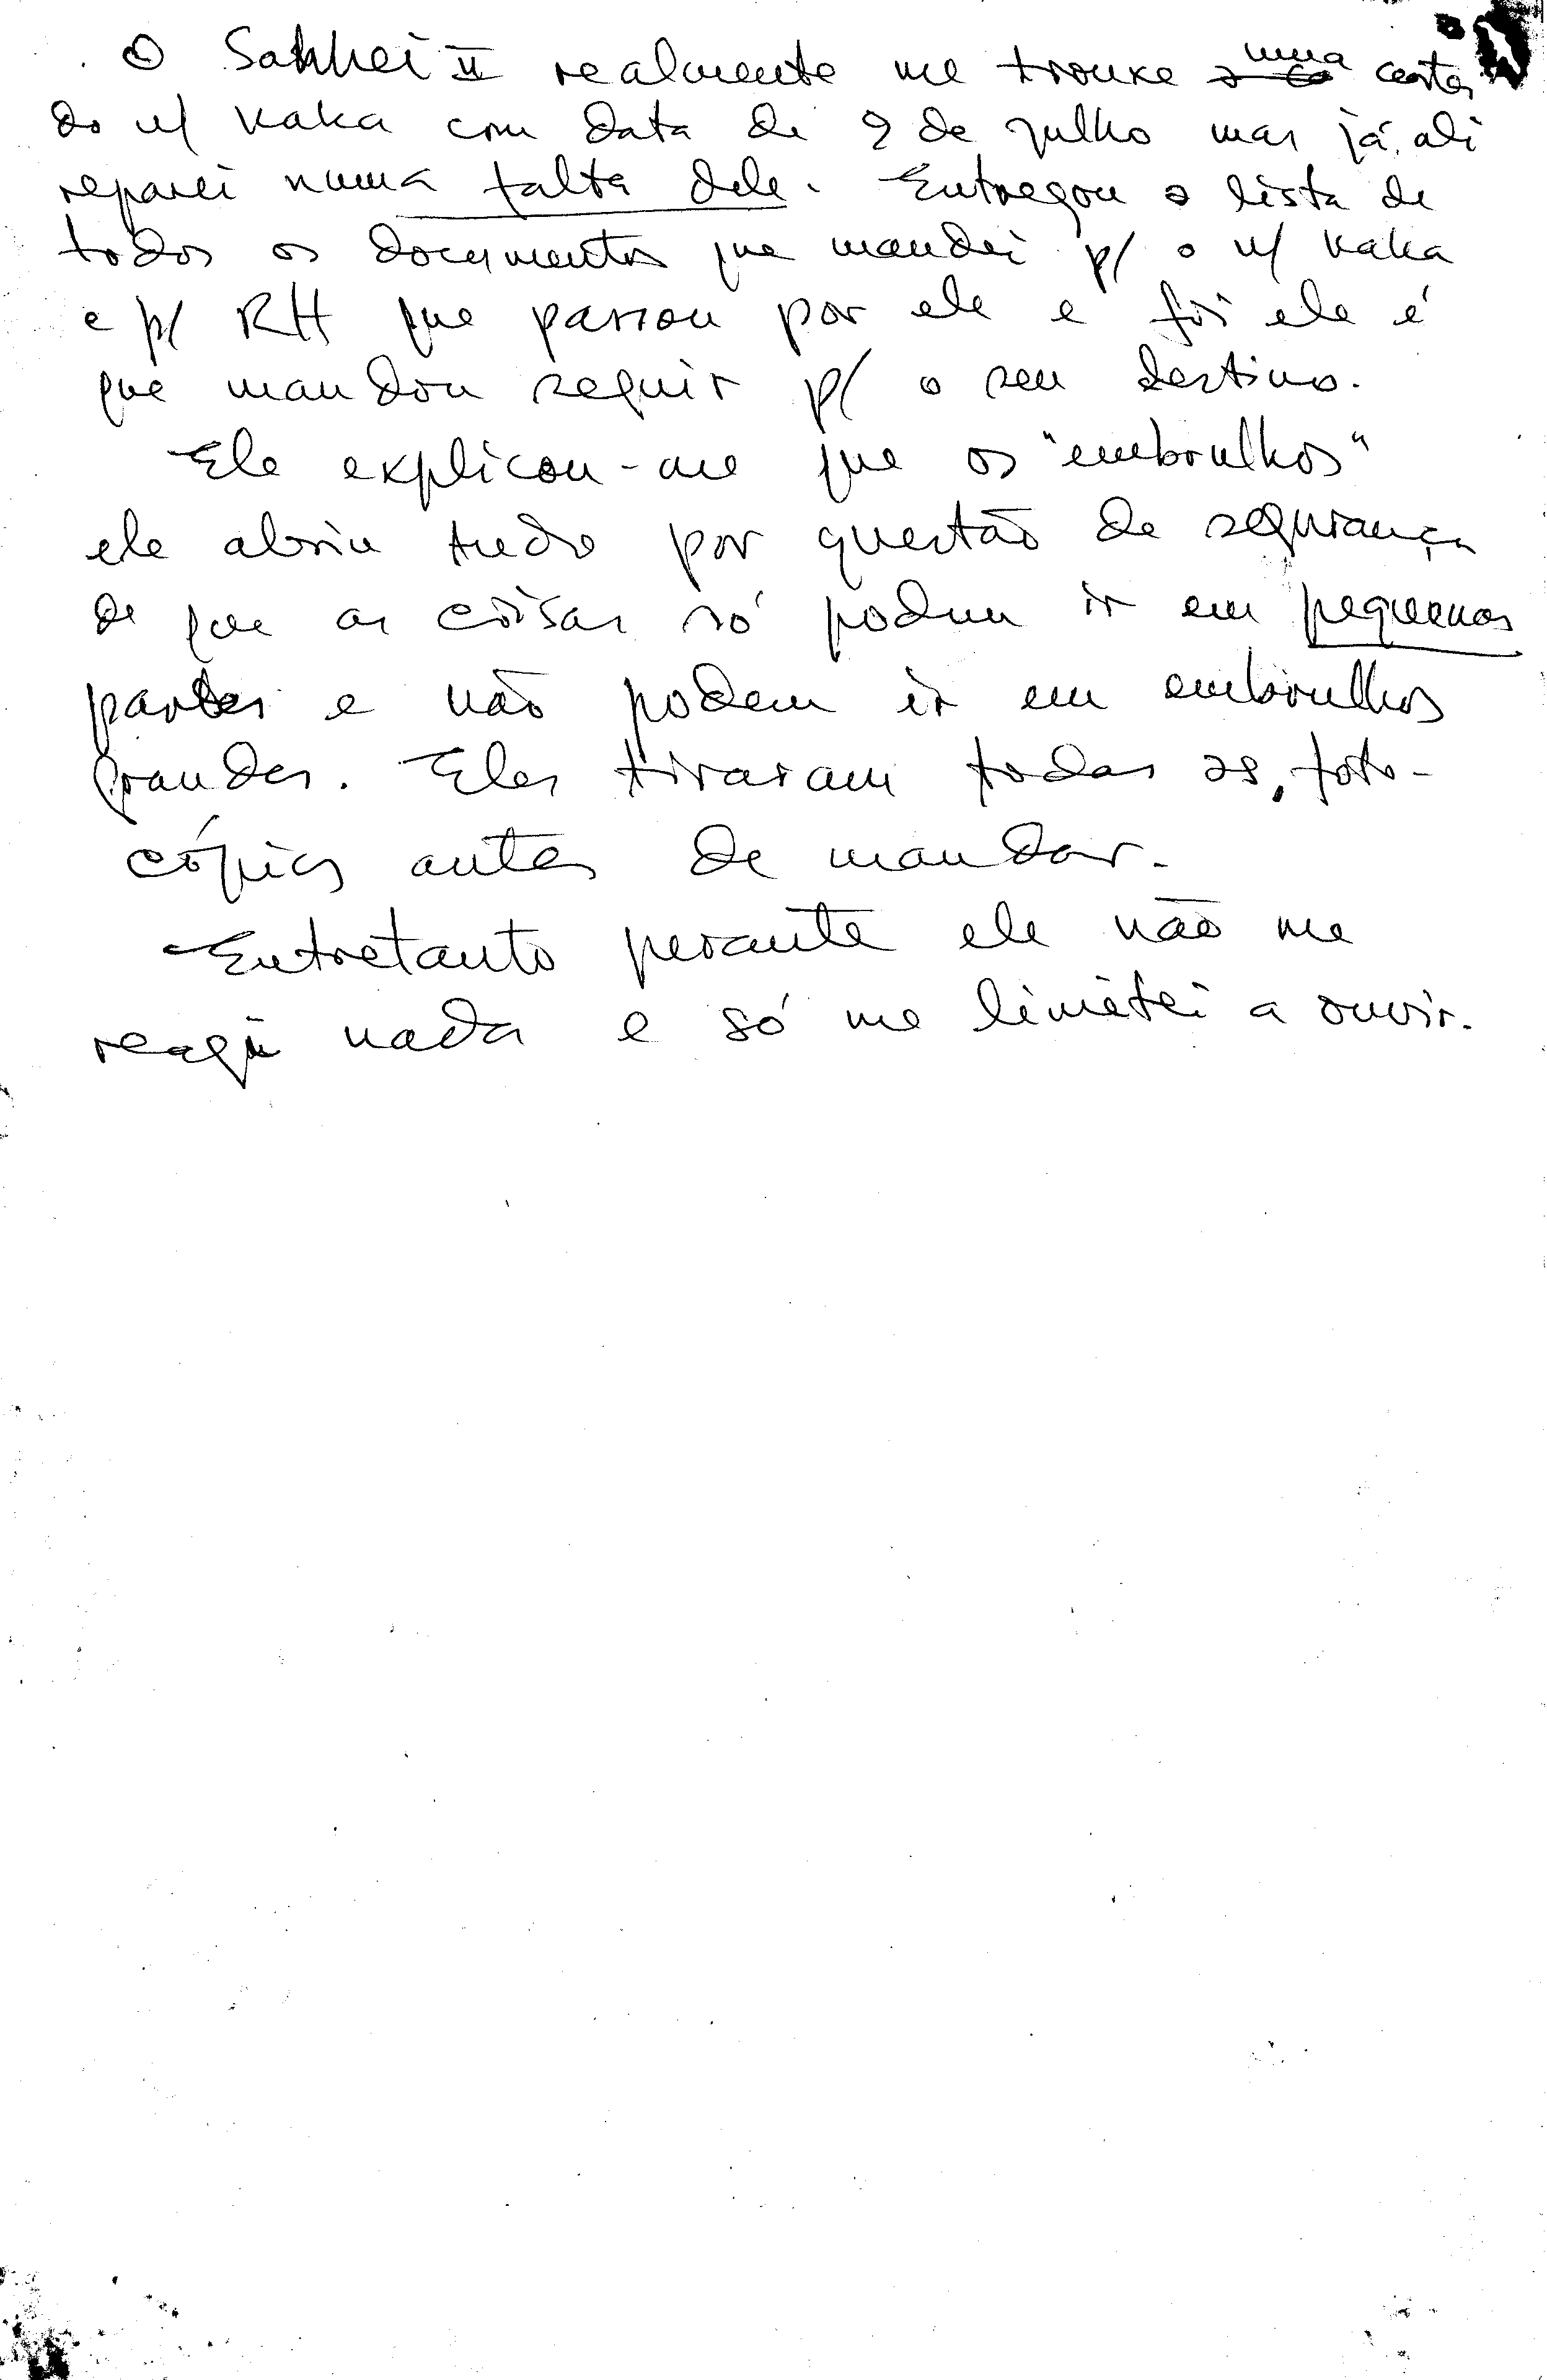 O Sakhei II realmente me trouxe uma carta
do n/ Kaka com data de 9 de julho mas já ali
reparei numa falta dele. Entregou a lista de
todos os documentos que mandei p/ o n/ Kaka
e p/ RH que passou por ele e foi ele é
que mandou seguir p/ o seu destino.
Ele explicou-me que os "embrulhos"
ele abriu tudo por questão de segurança
de que as coisas só podem ir em pequenas
partes e não podem ir em embrulhos
grandes. Eles tiraram todas as foto-
cópias antes de mandar.
Entretanto perante ele não me
reagi nada e só me limitei a ouvir.